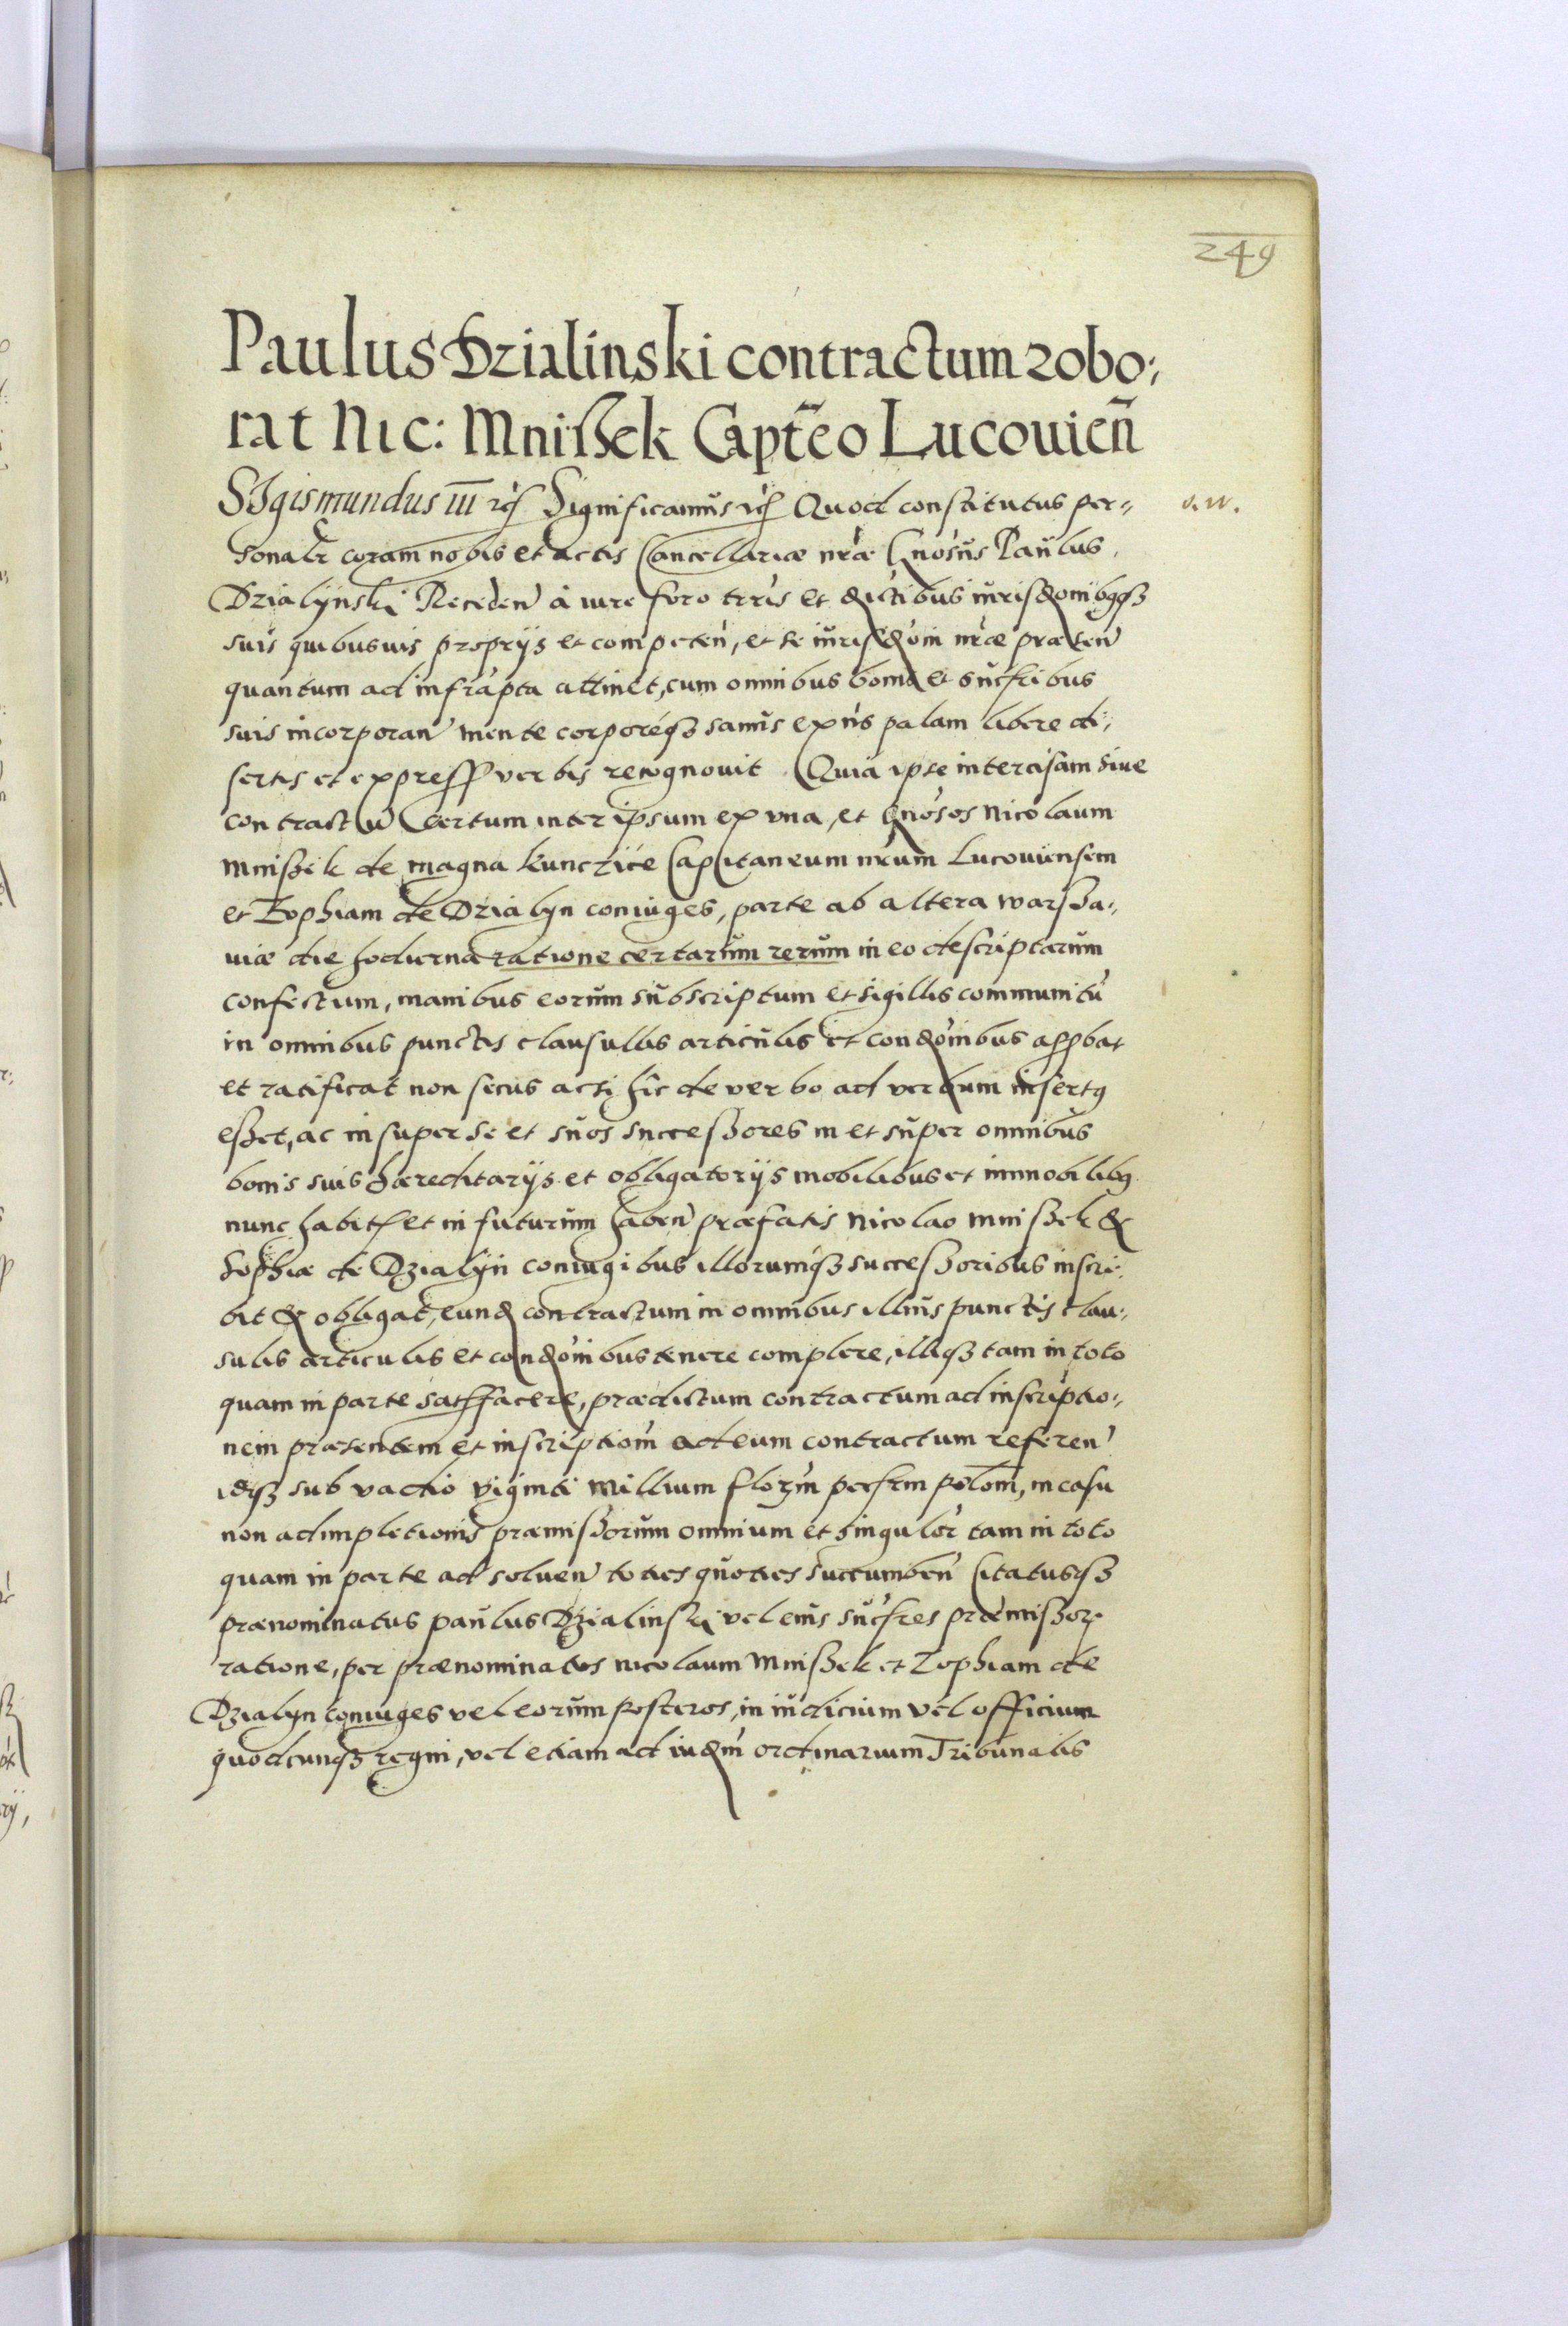 249
Paulus Dzialinski contractum robo:
rat Nic: Mnißek Capt̃eo Lucouien̄
SIgismundus III etc Significamus etc Quod constitutus per=
s. w.
sonalr coram nobis et actis Cancellariæ nr̃æ Gnosus Paulus
Dzialÿnski Receden̄ à iure foro terris et dictibus iurisdoni bqqꝫ
suis quibusuis proprijs et competen̄, et se iurisdoni nr̃æ præsen̄
quantum ad infrapta attinet, cum omnibus bonis et sucribus
suis incorporan̄ mente corporeqꝫ sanus exn̄s palam libere di,
sertis et express verbis recognouit Quia ipse intercisam siue
contractu certum inter ipsum ex vna, et Gnosos Nicolaum
Mnißek de magna kunczice Capitaneum nr̃um Lucouiensem
et Zophiam de Dzialyn coniuges, parte ab altera warßa,
uiæ die hodierna ratione certarum rerum in eo descriptarum
confectum, manibus eorum subscriptum et sigillis communitũ
in omnibus punctis clausullis articulis et condonibus appbat
et ratificat non secus acsi hic de verbo ad verbum insertq
eßet, ac insuper se et suos succeßores in et super omnibus
bonis suis hæreditarijs et obligatorijs mobilibus et immobilibq
nunc habit et in futurum haben̄ præfatis Nicolao Mnißek &
Sophiæ de Dzialÿn coniugibus illorumqꝫ succeßoribus inscri,
bit & obligat, eund contractum in omnibus illius punctis clau,
sulis articulis et condonibus tenere complere, illiqꝫ tam in toto
quam in parte satffacere, prædictum contractum ad inscriptio,
nem præsentem et inscriptiom ad eum contractum referen̄
idqꝫ sub vadio viginti Millium florm polom, in casu
non adimpletionis præmißorum omnium et singulor tam in toto
quam in parte ad soluen̄ toties quoties succumben̄ Citatusqꝫ
prænominatus paulus Dzialinski vel eius sucres præmißor
ratione, per prænominatos nicolaum Mnißek et Zophiam de
Dzialyn coniuges vel eorum posteros, in iudicium vel officium
quodcunqꝫ regni, vel etiam ad iudm ordinarium Tribunalis